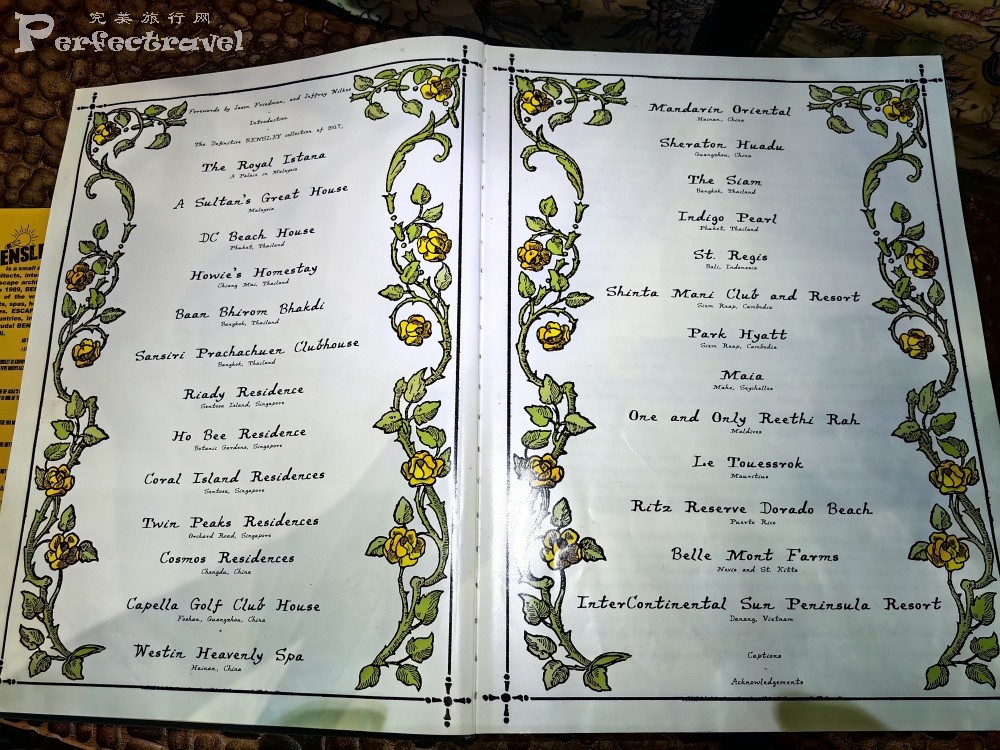 完美旅行网
Perfectravel
Forewords by Jason Friedman, and Jeffrey Wilkes
Introduction
The Definitive BENSLEY collection of 2017,
The Royal Istana
A Palace in Malaysia
A Sultan's Great House
Malaysia
DC Beach House
Phuket, Thailand
Howie's Homestay
Chiang Mai, Thailand
Baan Bhirom Bhakdi
Bangkok, Thailand
Sansiri Prachachuen Clubhouse
Bangkok, Thailand
Riady Residence
Sentosa Island, Singapore
Ho Bee Residence
Botanic Gardens, Singapore
Coral Island Residences
Sentosa, Singapore
Twin Peaks Residences
Orchard Road, Singapore
Cosmos Residences
Chengdu, China
Capella Golf Club House
Foshan, Guangzhou, China
Westin Heavenly Spa
Hainan, China
Mandarin Oriental
Hainan, China
Sheraton Huadu
Guangzhou, China
The Siam
Bangkok, Thailand
Indigo Pearl
Phuket, Thailand
St. Regis
Bali, Indonesia
Shinta Mani Club and Resort
Siem Reap, Cambodia
Park Hyatt
Siem Reap, Cambodia
Maia
Mahe, Seychelles
One and Only Reethi Rah
Maldives
Le Touessrok
Mauritius
Ritz Reserve Dorado Beach
Puerto Rico
Belle Mont Farms
Nevis and St. Kitts
InterContinental Sun Peninsula Resort
Danang, Vietnam
Captions
Acknowledgements
ENSL
is a small